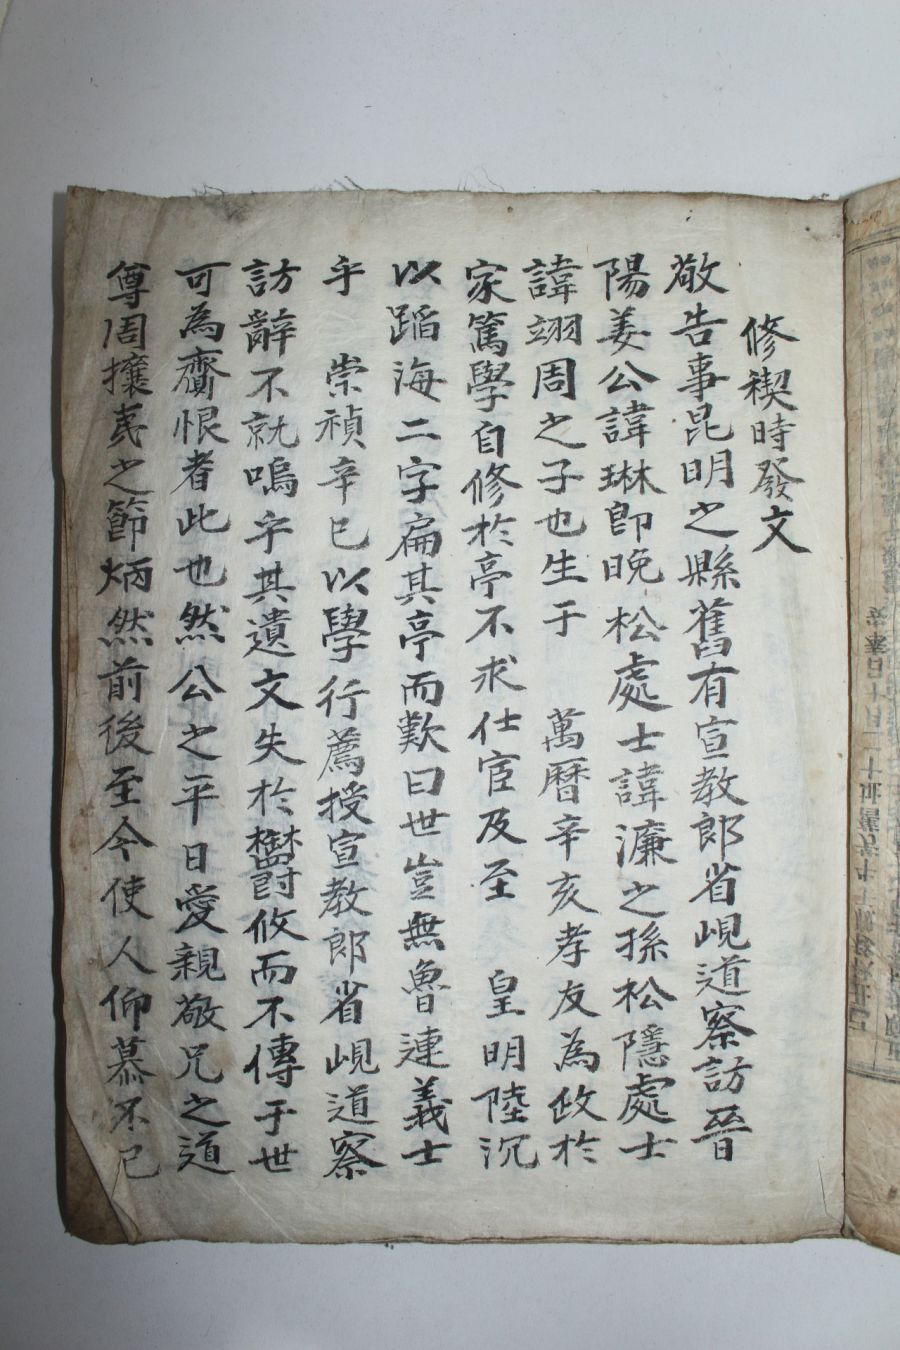 修禊時發文
敬告事昆明之縣舊有宣教郎省峴道察訪晉
陽姜公諱琳卽晚松處士諱濂之孫松隱處士
諱翊周之子也生于 萬曆辛亥孝友為政於
家篤學自修於亭不求仕宦及至 皇明陸沉
以蹈海二字扁其亭而歎曰世豈無魯連義士
乎 崇禎辛巳以學行薦授宣教郎省峴道察
訪辭不就嗚乎其遺文失於欝攸而不傳于世
可為齎恨者此也然公之平日愛親敬兄之道
尊周攘夷之節炳然前後至今使人仰慕不已